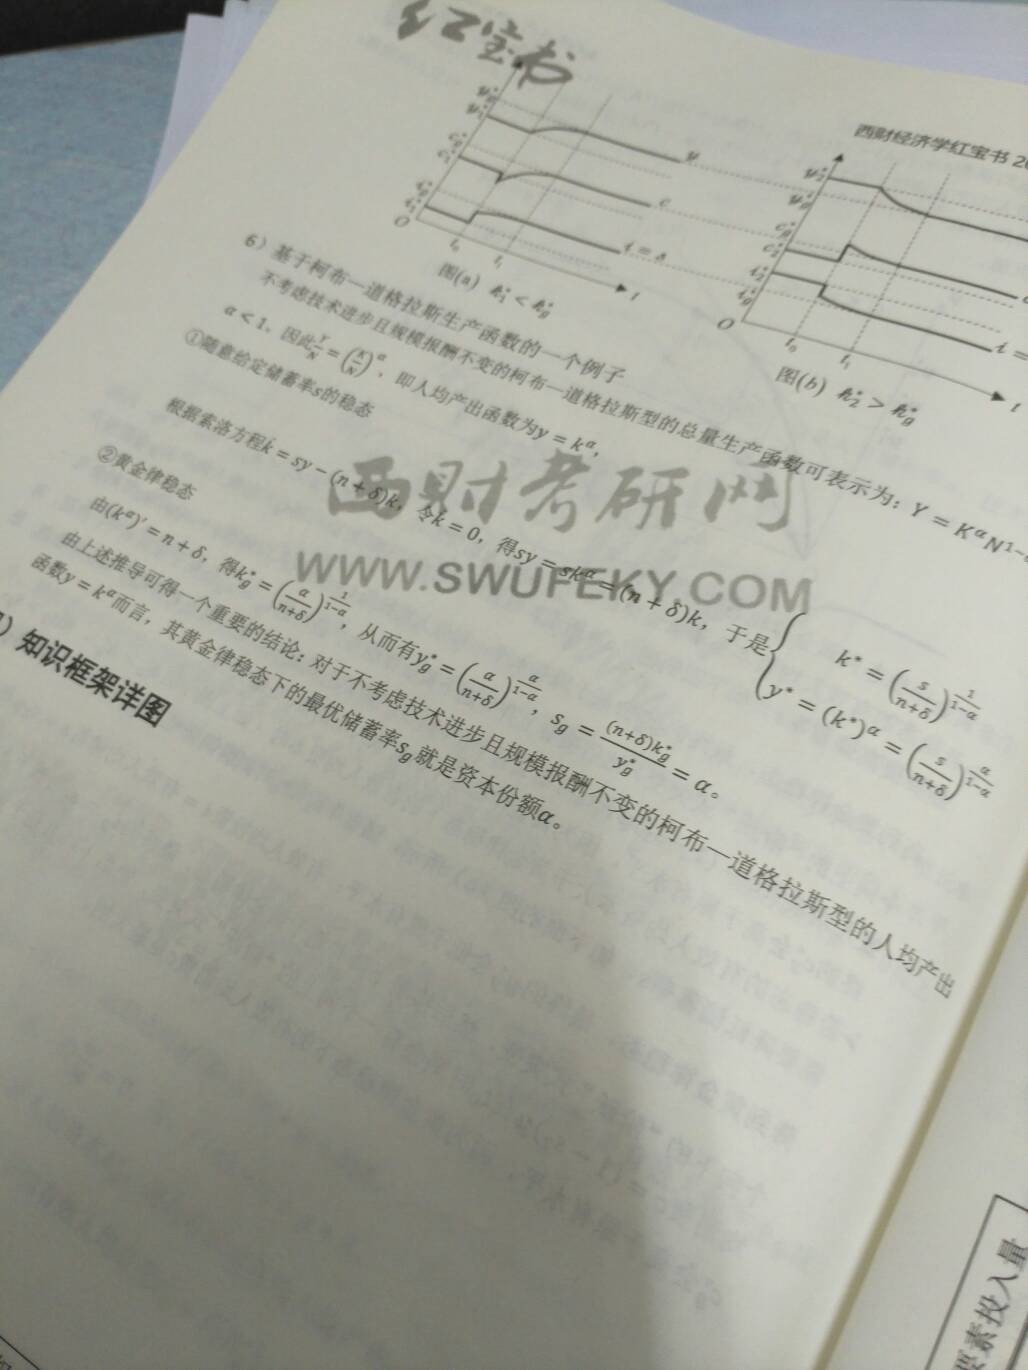 红宝书
西财经济学红宝书 20
y
c
i = s
O
t₀
t₁
t
图(a) k₁* < k_g*
y₂*
y_g*
c_g*
c₂*
i₂*
i_g*
O
t₀
t₁
i =
t
图(b) k₂* > k_g*
6）基于柯布—道格拉斯生产函数的一个例子
不考虑技术进步且规模报酬不变的柯布—道格拉斯型的总量生产函数可表示为：Y = K^αN^1−
α < 1，因此Y/N = (K/N)^α，即人均产出函数为y = k^α，
①随意给定储蓄率s的稳态
根据索洛方程k̇ = sy − (n + δ)k，令k̇ = 0，得sy = sk^α = (n + δ)k，于是{k* = (s/(n+δ))^(1/(1−α))
y* = (k*)^α = (s/(n+δ))^(α/(1−α))
②黄金律稳态
由(k^α)′ = n + δ，得k_g* = (α/(n+δ))^(1/(1−α))，从而有y_g* = (α/(n+δ))^(α/(1−α))，s_g = (n+δ)k_g*/y_g* = α。
由上述推导可得一个重要的结论：对于不考虑技术进步且规模报酬不变的柯布—道格拉斯型的人均产出
函数y = k^α而言，其黄金律稳态下的最优储蓄率s_g就是资本份额α。
）知识框架详图
西财考研网
WWW.SWUFEKY.COM
素投入量